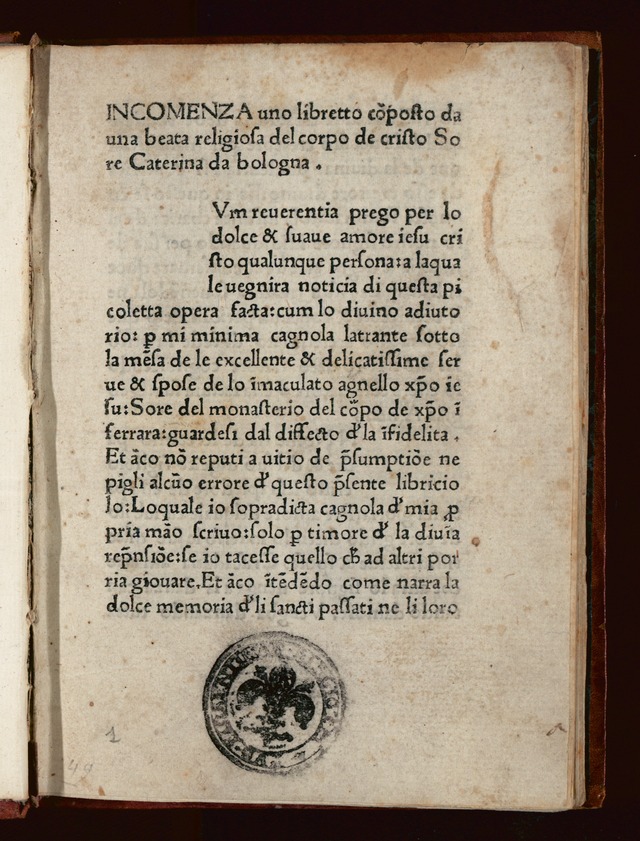 INCOMENZA uno libretto cõposto da
una beata religiosa del corpo de cristo So
re Caterina da bologna .
Vm reuerentia prego per lo
dolce & suaue amore iesu cri
sto qualunque persona:a laqua
le uegnira noticia di questa pi
coletta opera facta:cum lo diuino adiuto
rio: ꝑ mi minima cagnola latrante sotto
la mẽsa de le excellente & delicatissime ser
ue & spose de lo ĩmaculato agnello xp̃o ie
su:Sore del monasterio del cõpo de xp̃o ĩ
ferrara:guardesi dal diffecto ď la ĩfidelita .
Et ãco nõ reputi a uitio de p̃sumptiõe ne
pigli alcũo errore ď questo p̃sente libricio
lo:Loquale io sopradicta cagnola ď mia ꝓ
pria mão scriuo:solo ꝑ timore ď la diuĩa
rep̃nsiõe:se io tacesse quello cħ ad altri por
ria giouare.Et ãco ĩtẽdẽdo come narra la
dolce memoria ď li sancti passati ne li loro
1
49